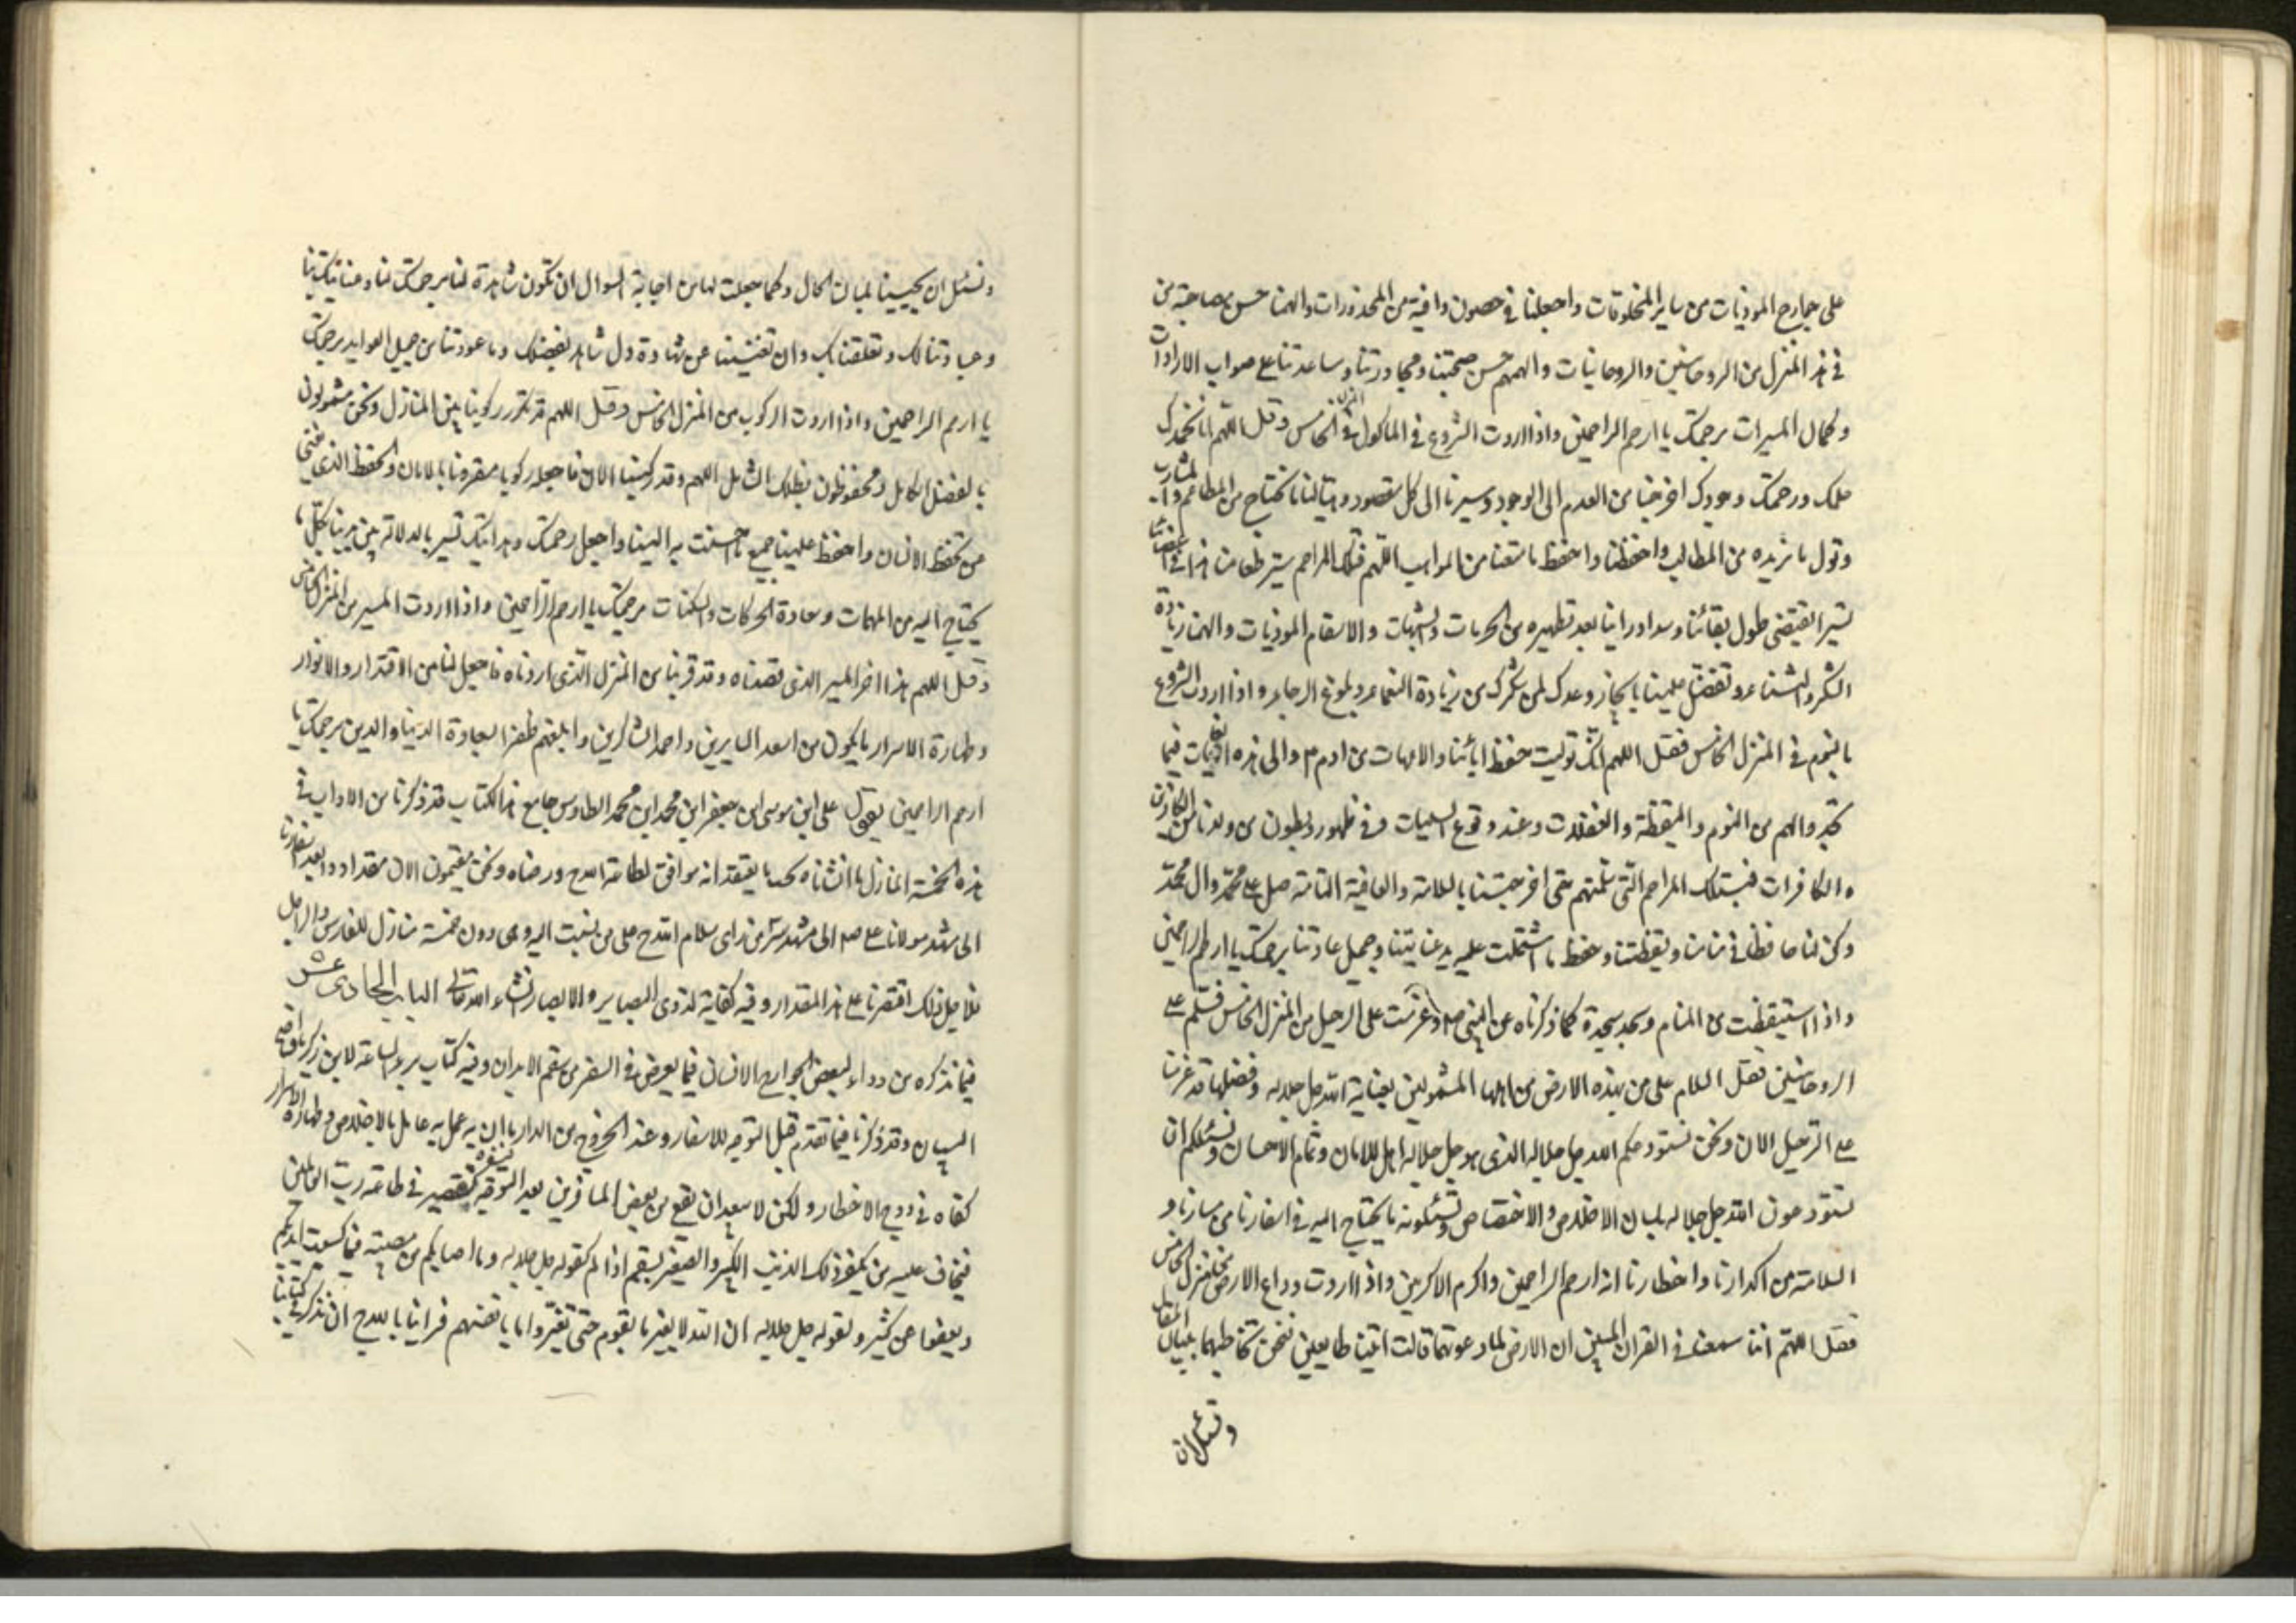 على جوارح الموذيات من ساير المخلوقات واجعلنا في حصون واقية من المحذورات والهمنا حسن مصاحبة من
في هذا المنزل من الروحانيين والروحانيات والهمهم حسن صحبتنا ومجاورتنا وساعدتنا على صواب الارادات
وكمال المسرات برحمتك يا ارحم الراحمين واذا اردت الشروع في الماكول في المنزل الخامس وقل اللهم انا نحمدك
حلمك ورحمتك وجودك اخرجتنا من العدم الى الوجود وسيرتنا الى كل مقصود وهيات لنا ما نحتاج من المطاعم والمشارب
وتول ما نريده من المطالب واحفظنا واحفظ ما معنا من المواهب اللهم فبتلك المراحم سير طعامنا هذا في اعضائنا
تسيرا يقتضى طول بقائنا وسداد رائنا بعد تطهيره من الحرمات والشبهات والاسقام الموذيات والهمنا زيادة
الشكر والثناء وتفضل علينا بانجاز وعدك لمن شكرك من زيادة النعماء وبلوغ الرجاء واذا اردت الشروع
بالنوم في المنزل الخامس فقل اللهم انك توليت حفظ ابائنا والامهات من ادم ع والى هذه الاوقات فيما
تجدد لهم من النوم واليقظة والغفلات وعند وقوع السيات وفي ظهور وبطون من ولدنا من الكافرين
والكافرات فبتلك المراحم التي شملتهم حتى اخرجتنا بالسلامة والعافية التامة صل على محمد وال محمد
وكن لنا حافظا في منامنا ويقظتنا وحفظ ما اشتملت عليه يد عنايتنا وجميل عادتنا برحمتك يا ارحم الراحمين
واذا استيقظت من المنام وسجد سجدة كما ذكرناه عن النبي صلم وعزمت على الرحيل من المنزل الخامس فسلم على
الروحانيين فقل السلام على من بهذه الارض من اهلها المشمولين بعناية الله جل جلاله وفضلها قد عزمنا
على الرحيل الان ونحن نستودعكم الله جل جلاله الذى هو جل جلاله اهل للامان وتمام الاحسان ونسئلكم ان
تستودعون الله جل جلاله بلسان الاخلاص والاختصاص وتسئلونه ما يحتاج اليه في اسفارنا من مسارنا و
السلامة من اكدارنا واخطارنا انه ارحم الراحمين واكرم الاكرمين واذا اردت وداع الارض من المنزل الخامس
فقل اللهم اننا سمعنا في القران المبين ان الارض لما دعوتها قالت اتينا طايعين فنحن نخاطبها بلسان المقال
ونسئل ان
ونسئل ان يجيبنا بلسان الحال وكما جعلت لها من اجابة السوال ان تكون شاهدة لنا برحمتك لنا وعنايتك بنا
وعبادتنا لك وتعلقنا بك وان تغنينا عن شهادة كل شاهد بفضلك وما عودتنا من جميل العوايد برحمتك
يا ارحم الراحمين واذا اردت الركوب من المنزل الخامس وقل اللهم قد تكرر ركوبنا بين المنازل ونحن مشمولون
بالفضل الكامل ومحفوظون بظلك الشامل اللهم وقد ركبنا الان فاجعله ركوبا مقرونا بالامان والحفظ الذى يغنى
من تحفظ الانسان واحفظ علينا جميع ما احسنت به الينا واجعل رحمتك وهدايتك تسير بالدلالة بين يدينا بكل ما
يحتاج اليه من المهمات وسعادة الحركات والسكنات برحمتك يا ارحم الراحمين واذا اردت المسير من المنزل الخامس
وقل اللهم هذا اخر المسير الذى قصدناه وقد قربنا من المنزل الذى اردناه فاجعل لنا من الاقتدار والانوار
وطهارة الاسرار ما يكون من اسعد السايرين واحمد الشاكرين وابلغهم ظفرا بسعادة الدنيا والدين برحمتك يا
ارحم الراحمين يقول على ابن موسى ابن جعفر ابن محمد ابن محمد الطاوس جامع هذا الكتاب قد ذكرنا من الاداب في
هذه الخمسة المنازل ما انشاناه بحسب ما يعتقد انه موافق لطاعة الله ج ورضاه ونحن مقيمون الان ببغداد وابعد اسفارنا
الى مشهد مولانا على صلم الى مشهد سر من راى سلام الله ج على من ينسبت اليه وهى دون خمسة منازل للفارس والراجل
فلاجل ذلك اقتصرنا على هذا المقدار وفيه كفاية لذوى البصاير والابصار انشاء الله تعالى الباب الحادى عشر
فيما نذكره من دواء لبعض جوارح الانسان فيما يعرض في السفر من سقم الابدان وفيه كتاب برء الساعة لابن زكريا واضح
البيان وقد ذكرنا فيما تقدم قبل التوجه للاسفار وعند الخروج من الدار ما ان عمل به عامل بالاخلاص وطهارة الاسرار
كفاه في دوح الاخطار ولكن لا يبعد ان يقع من بعض المسافرين بعد التوجه تقصير في طاعة رب العالمين
فيخاف عليه من يكفر ذلك الذنب الكبير والصغير بسقم اذا لم كقوله جل جلاله وما اصابكم من مصيبة فبما كسبت ايديكم
ويعفوا عن كثير ولقوله جل جلاله ان الله لا يغير ما بقوم حتى يغيروا ما بانفسهم فراينا بالله ج ان نذكر في كتابنا